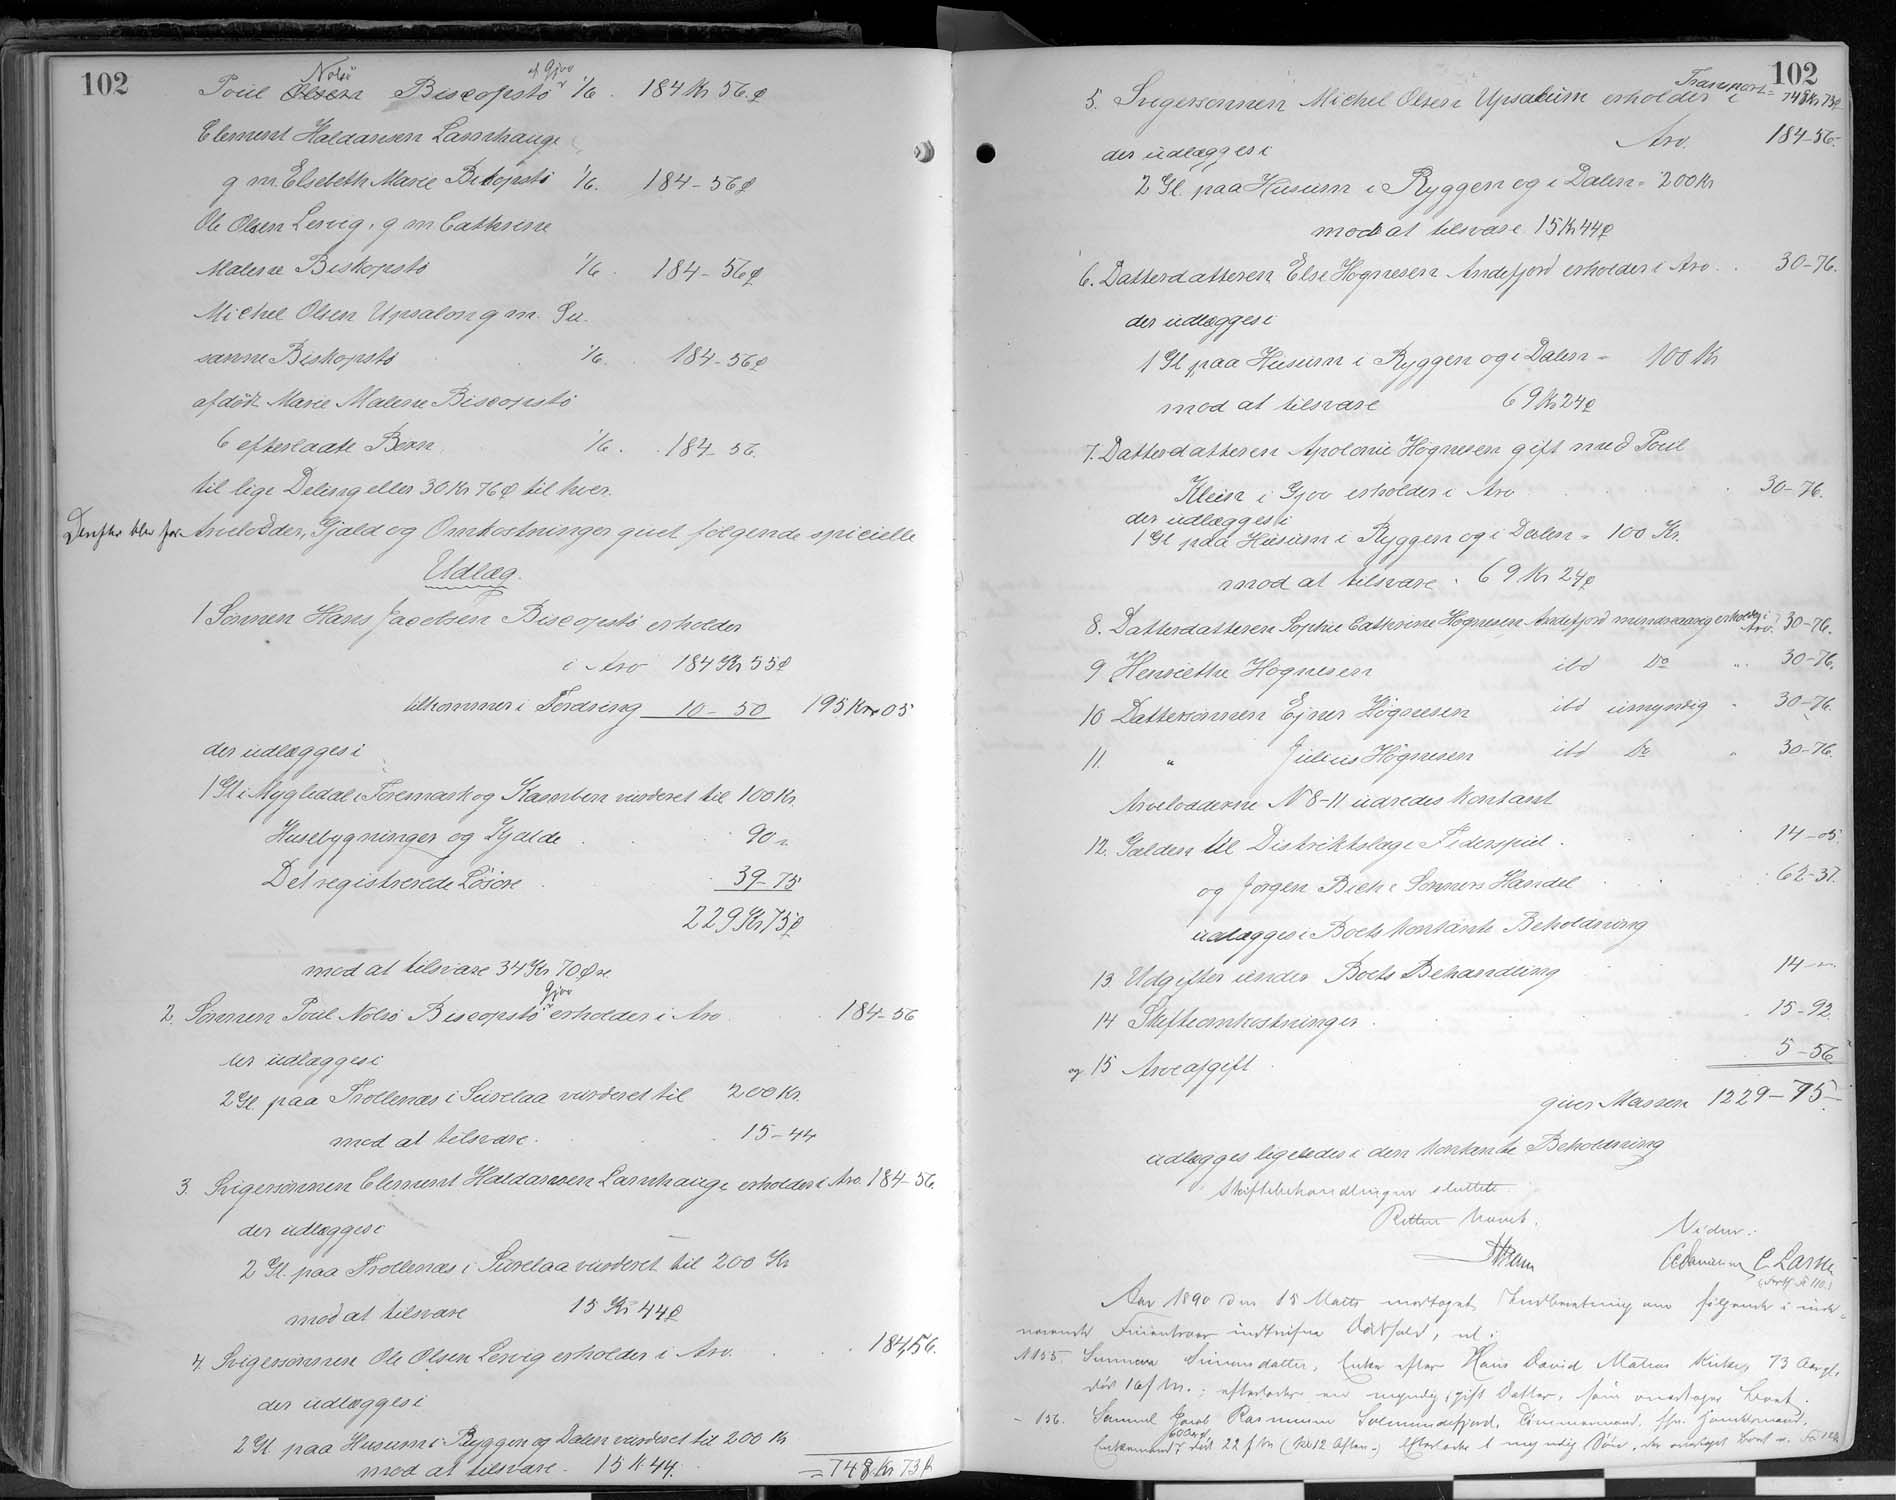 102
Nolsö af Gjov
Poul Olsen Biscopstö 1/6. 184 Kr 56 ø
Clement Haldansen Lamhauge
g m. Elsebeth Marie Biskopstö 1/6. 184-56 ø
Ole Olsen Lervig, g m Cathrine
Malene Biskopstö 1/6. 184-56 ø
Michel Olsen Upsalon g m. Su-
sanne Biskopstö 1/6. 184-56 ø
afdöde Marie Malene Biscopstö
6 efterladte Börn 1/6. 184-56.
til lige Deling eller 30 Kr 76 ø til hver.
Derefter blev for Arvelodder, Gjæld og Omkostninger giuet følgende specielle
Udlæg.
1 Sönnen Hans Jacobsen Biscopstö erholder
i Arv 184 Kr 55 ø
tilkommer i Fordring 10-50 195 Kr 05
der udlægges i
1 Gl i Mygledal i Foremark og Kambem vurderet til 100 Kr.
Husebygninger og Hjalde 90 "
Det registrerede Lösöre 39-75
229 Kr 75 ø
mod at tilsvare 34 Kr 70 Øre
Gjov
2. Sönnen Poul Nolsö Biscopstö erholder i Arv 184-56
der udlægges i
2 Gl. paa Trollenæs i Surelaa vurderet til 200 Kr.
mod at tilsvare. 15-44
3. Svigersönnen Clement Haldansen Lamhauge erholder i Arv. 184-56.
der udlægges i
2 Gl. paa Trollenæs i Surelaa vurderet til 200 Kr
mod at tilsvare 15 Kr 44 ø
4. Svigersönnen Ole Olsen Lervig erholder i Arv. 184,56.
der udlægges i
2 Gl paa Husum i Ryggen og Dalen vurderet til 200 Kr
mod at tilsvare. 15 K 44. = 748 Kr 73
102
Transport = 748 Kr 73 ø
5. Svigersönnen Michel Olsen Upsalum erholder i
Arv. 184-56.
der udlægges i
2 Gl. paa Husum i Ryggen og i Dalen = 200 Kr
mod at tilsvare 15 Kr 44 ø
6. Datterdatteren Else Högnesen Andefjord erholder i Arv 30-76.
der udlægges i
1 Gl paa Husum i Ryggen og i Dalen = 100 Kr
mod at tilsvare 69 Kr 24 ø
7. Datterdatteren Apolonie Högnesen gift med Poul
Klein i Gjov erholder i Arv 30-76.
der udlægges i
1 Gl paa Husum i Ryggen og i Dalen = 100 Kr.
mod at tilsvare. 69 Kr 24 ø
8. Datterdatteren Sophie Cathrine Högnesen Andefjord mindreaarig erholder i Arv. 30-76.
9 Henriette Högnesen ibd Do " 30-76.
10 Dattersönnen Ejner Högnesen ibd umyndig " 30-76.
11. " Julius Högnesen ibd Do " 30-76.
Arvelodderne N 8-11 udredes kontant
12. Gælden til Distriktslæge Federspiel 14-05.
og Jörgen Bech's Sönners Handel 62-37.
udlægges i Boets kontante Beholdning
13. Udgifter under Boets Behandling 14-"
14 Skifteomkostninger 15-92.
og 15 Arveafgift 5-56
giver Massen 1229-75
udlægges ligeledes i den kontante Beholdning
Skiftebehandlingen sluttet.
Retten hævet.
Vidner:
C Larsen
(Fortf Fo 110.)
Aar 1890 den 15 Marts modtoget Indberetning om følgende i inde-
værende indtrufne Dödsfald, nl:
N 155. Sunneva Simonsdatter, Enke efter Hans David Matras 73 Aar gl,
död 16 f M.; efterlader en myndig, gift Datter, som overtager Boet.
- 156. Samuel Jacob Rasmussen Solmundefjord, Tömmermand,
Enkemand, död 22 f M (Kl 12 Aften) Efterlader 1 myndig Sön, der overtaget Boet.